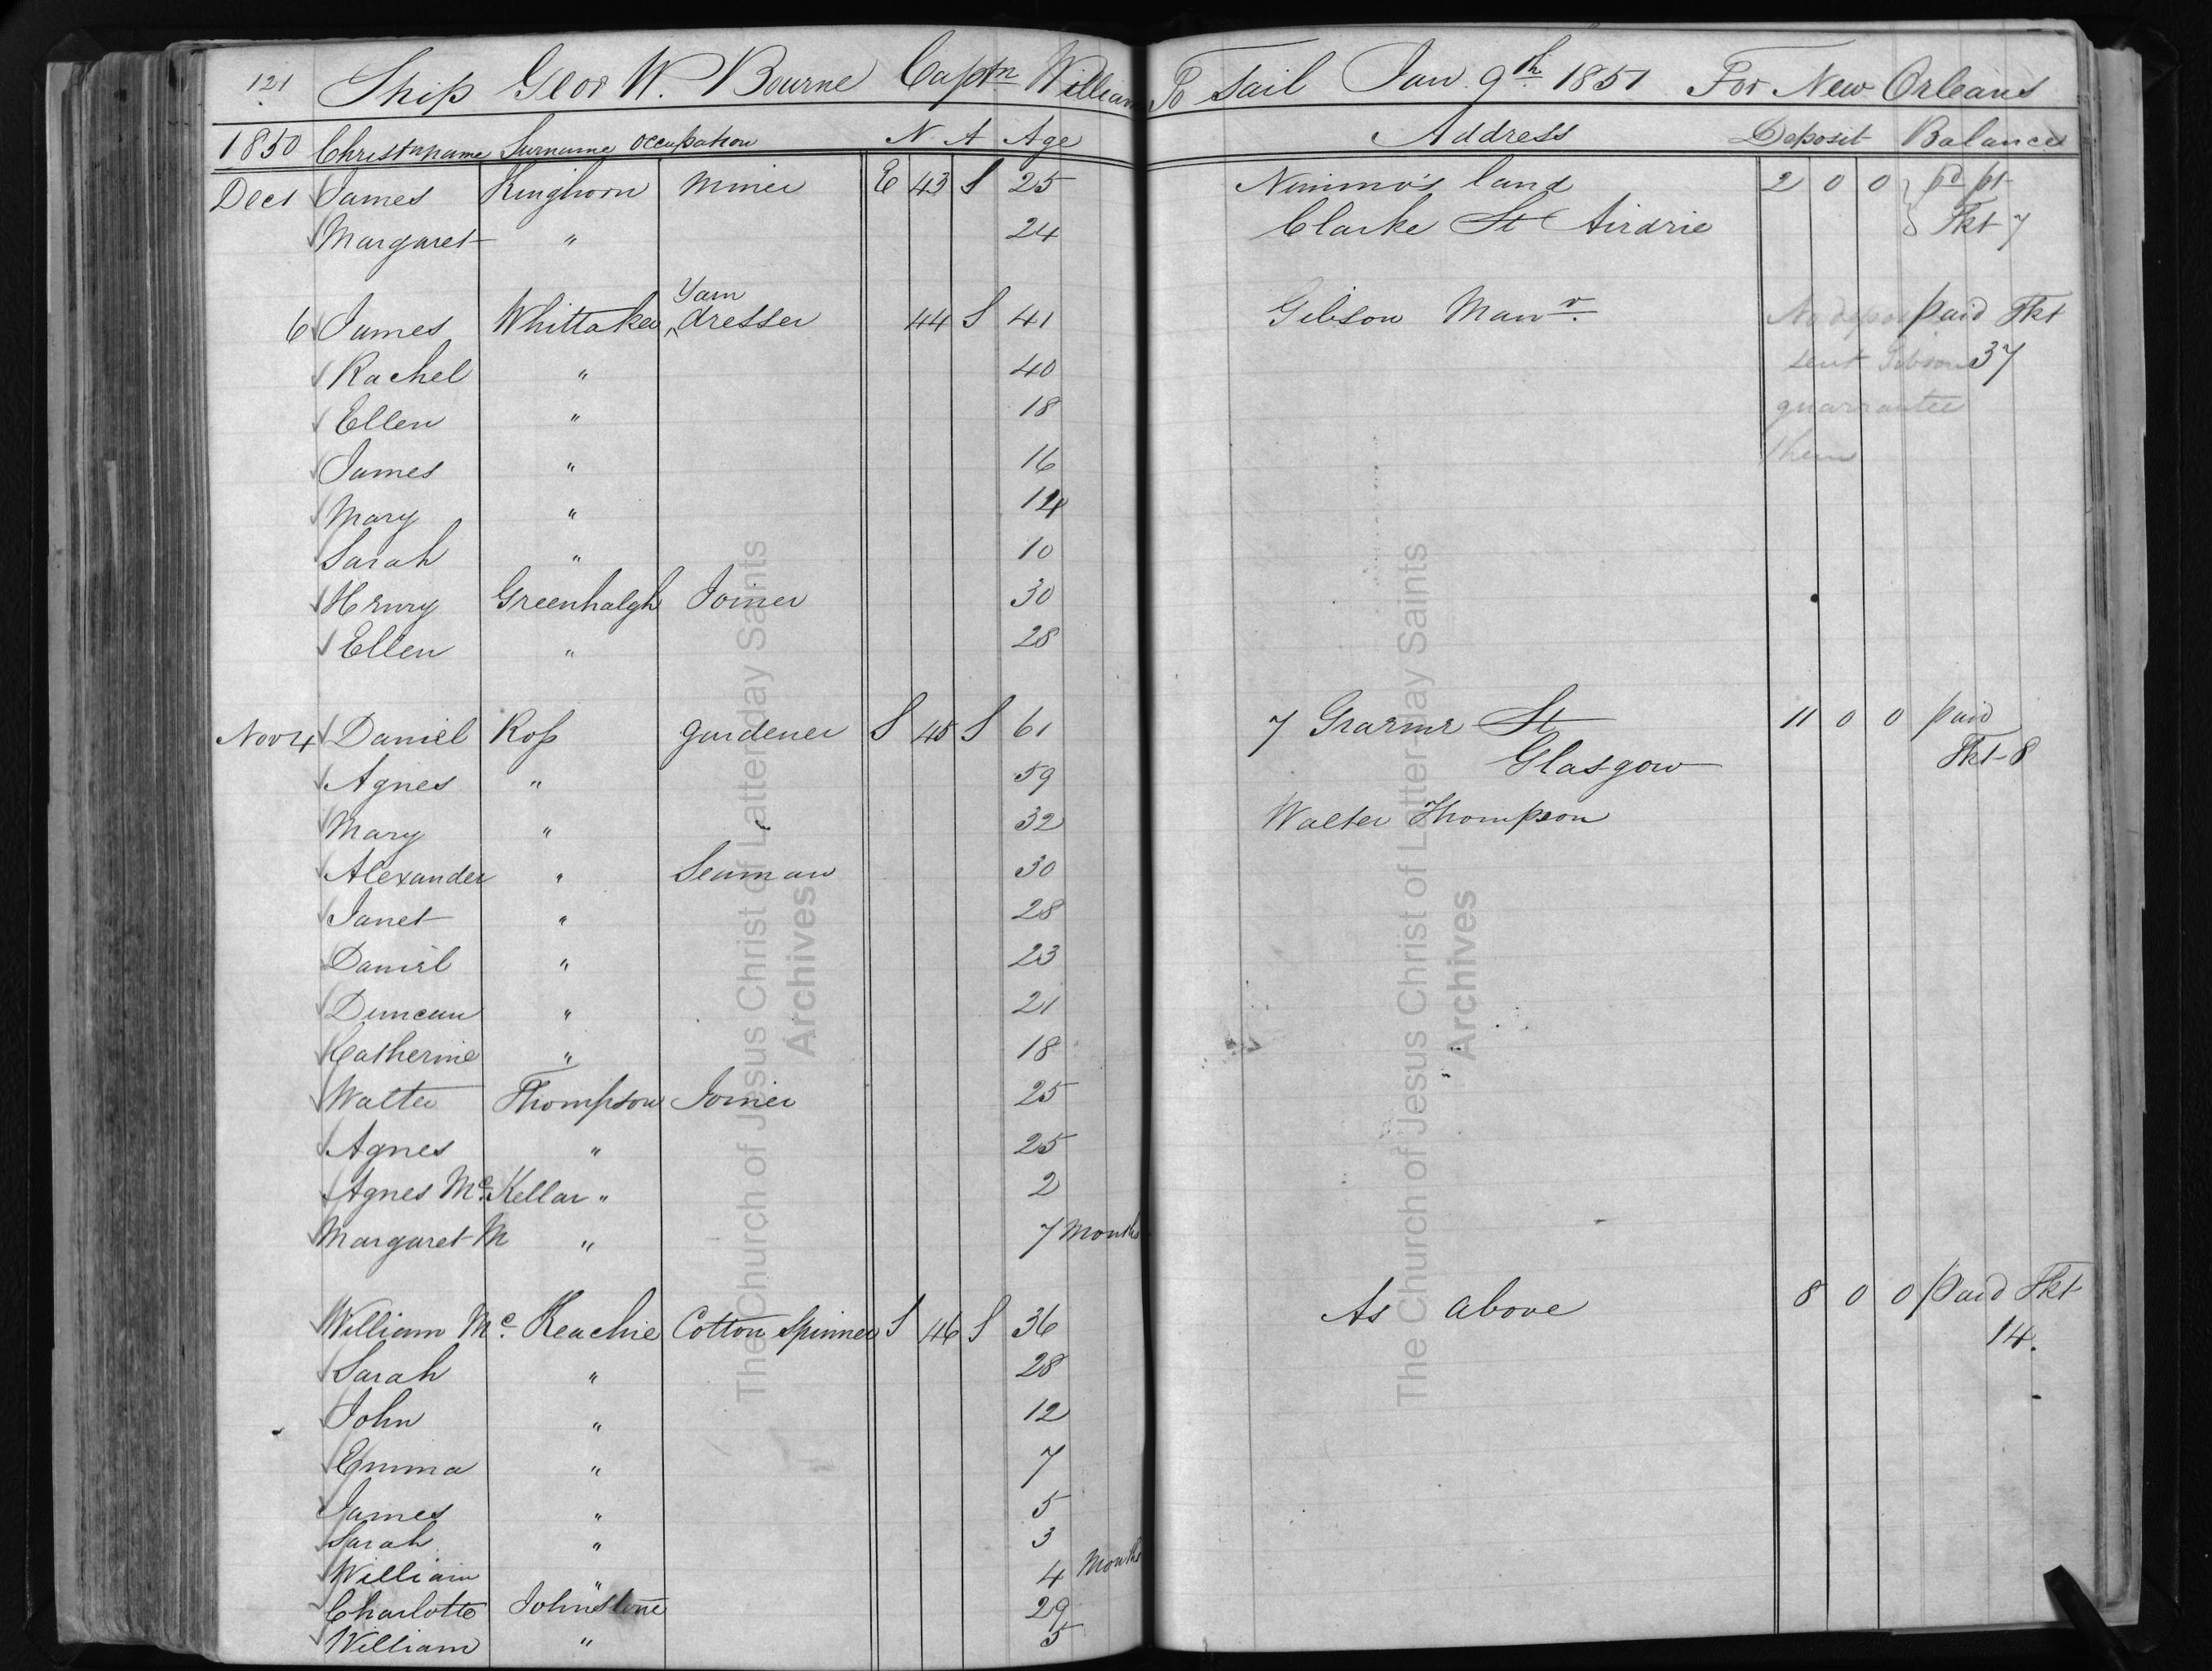 121 Ship Geor W. Bourne Captn William To Sail Jan 9th 1851 For New Orleans
1850 Christnname Surname occupation N A Age Address Deposit Balance
Dec 1 James Kinghorn Miner E 43 S 25 Nimmo's land 2 0 0 pd pt
Margaret " 24 Clarke St Airdrie Tkt 7
Yarn
6 James Whittaker dresser 44 S 41 Gibson Manr. No deposit Paid Tkt
Rachel " 40 sent Gibson 37
Ellen " 18 guarrantee
James " 16 them
Mary " 14
Sarah " 10
Henry Greenhalgh Joiner 30
Ellen " 28
Nov 4 Daniel Ross gardener S 45 S 61 7 Graeme St 11 0 0 paid
Agnes " 59 Glasgow Tkt 8
Mary " 32 Walter Thompson
Alexander " Seaman 30
Janet " 28
Daniel " 23
Duncan " 21
Catherine " 18
Walter Thompson Joiner 25
Agnes " 25
Agnes Mc. Kellar " 2
Margaret M " 7 Months
William Mc. Keachie Cotton Spinner S 46 S 36 As above 8 0 0 Paid Tkt
Sarah " 28 14.
John " 12
Emma " 7
James " 5
Sarah " 3
William " 4 Months
Charlotte Johnstone 29
William " 5
The Church of Jesus Christ of Latter-day Saints
Archives
The Church of Jesus Christ of Latter-day Saints
Archives